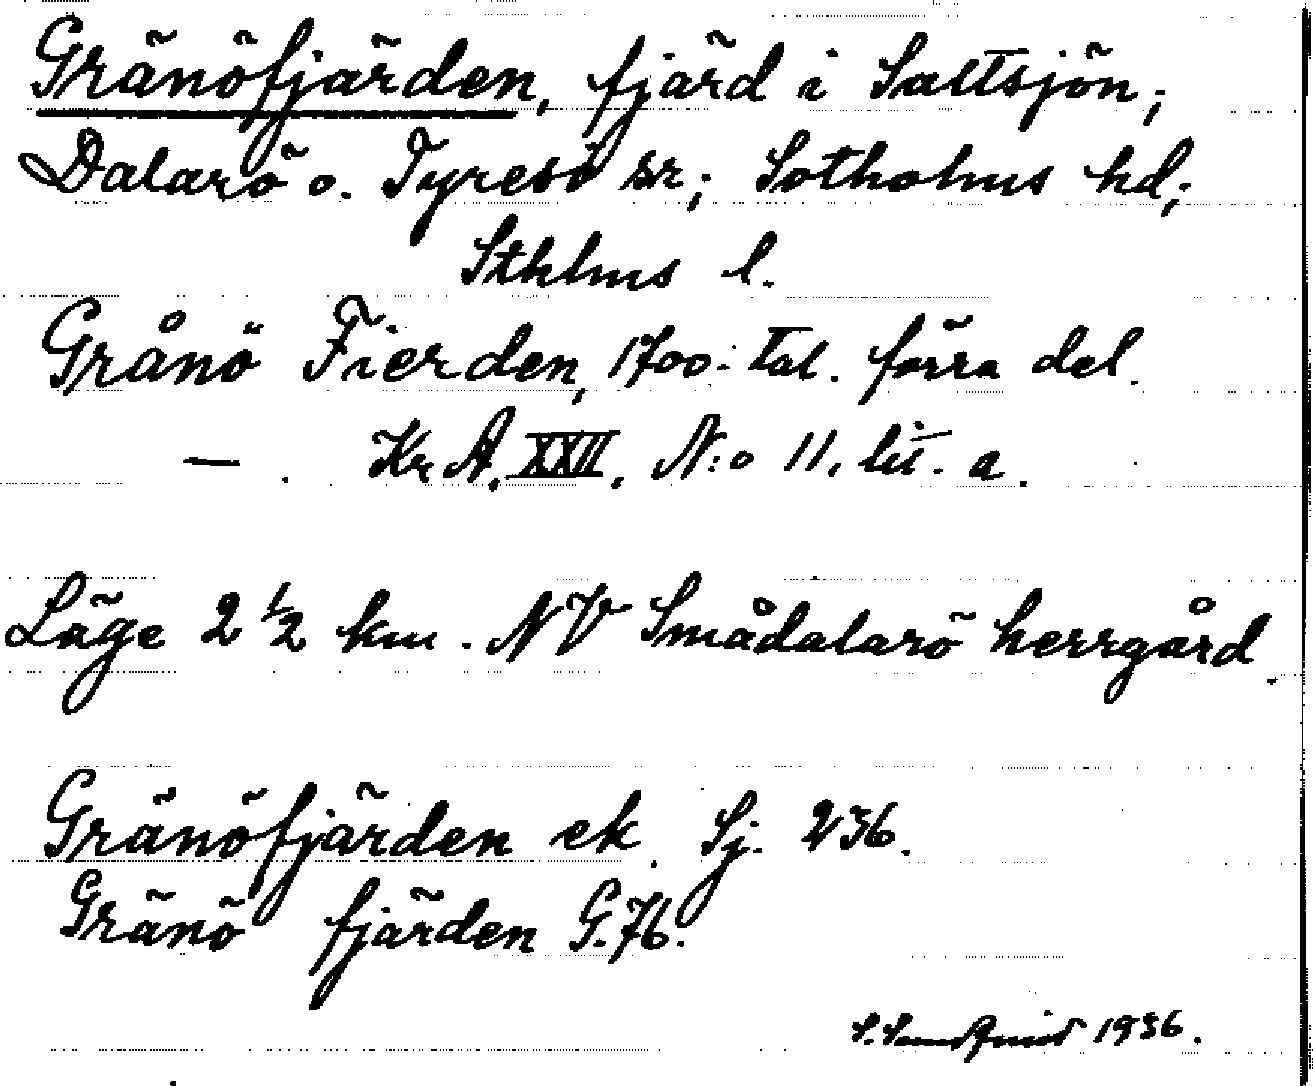 Gränöfjärden, fjärd i Saltsjön;
Dalarö o. Tyresö sr; Sotholms hd;
Sthlms l.
Grånö Fierden, 1700-tal. förra del.
— . Kr A. XXII. N:o 11. lit. a.
Läge 2 1/2 km. NV Smådalarö herrgård.
Gränöfjärden ek. Sj. 236.
Gränö fjärden G. 76.
1936.